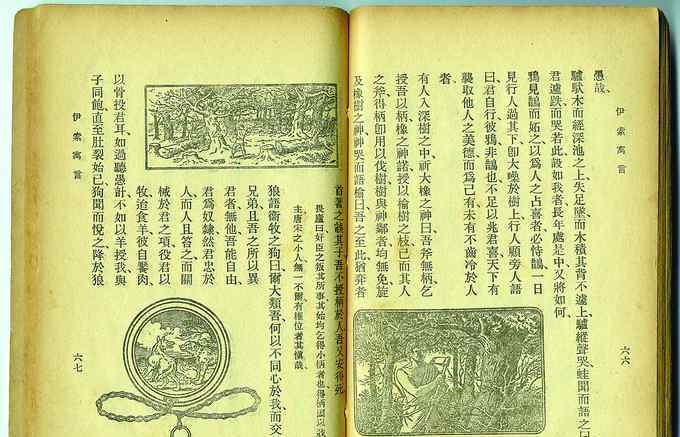 伊索寓言
六六
愚哉、
驢馱木而經深池之上失足墜而木積其背不遽上驢縱聲哭蛙聞而語之曰
君遽跌而哭若此設如我者長年處是中又將如何、
鴉見鵲而妬之以爲人之占喜者必恃鵲一日
見行人過其下卽大噪於樹上行人顧旁人語
曰君自行彼鴉非鵲也不足以兆君喜天下有
襲取他人之美德而爲己有未有不齒冷於人
者、
有人入深樹之中祈大橡之神曰吾斧無柄乞
授吾以柄橡之神諾授以榆樹之枝已而其人
之斧得柄卽用以伐樹樹與神鄰者均無免旋
及橡樹之神神哭而語榆曰吾之至此猶弈者
首著之其予吾不授柄於人吾又安得死
畏廬曰奸臣之叛其所事其始均乞得小柄者也得柄國以戕
主唐宋之小人無一不爾有權位者其愼哉、
狼語衞牧之狗曰爾大類吾何以不同心於我而交
兄弟且吾之所以異
君者無他吾能自由
君爲奴隸然君忠於
人而人且答之而關
械於君之項役君以
牧迨食羊彼自饗肉
以骨投君耳如過聽愚計不如以羊授我與
子同飽直至肚裂始已狗聞而悅之降於狼
伊索寓言
六七